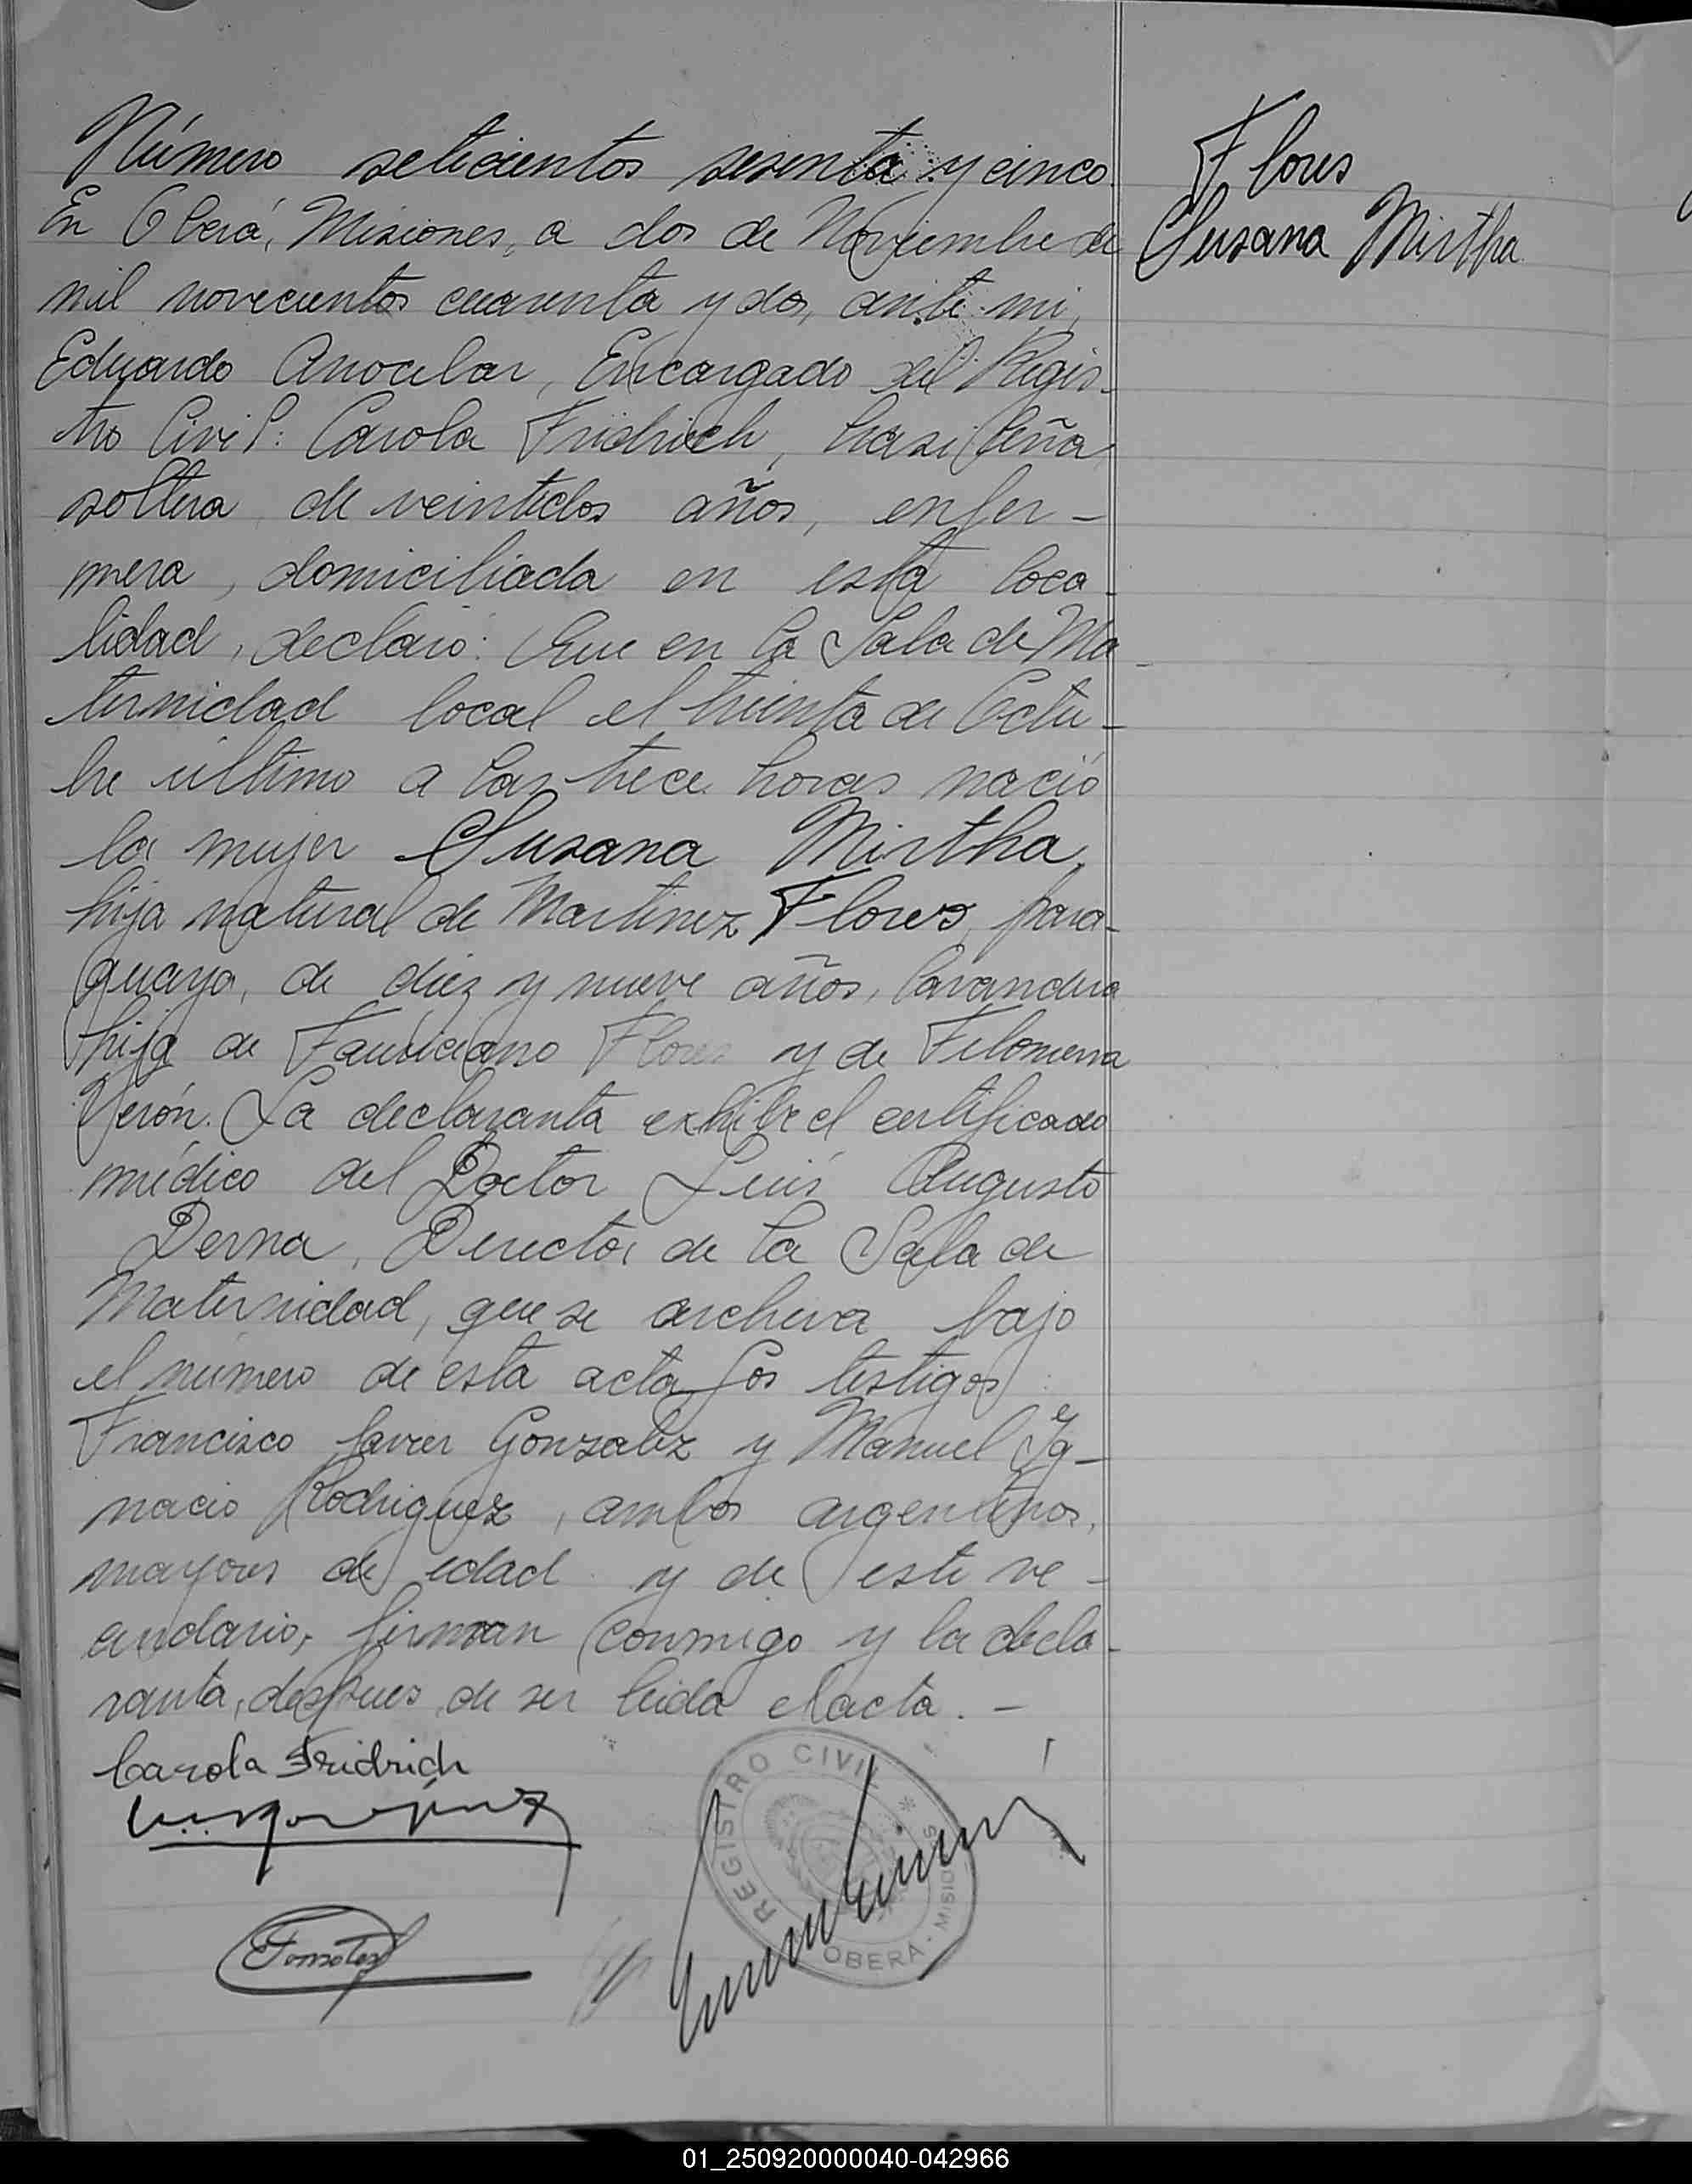 Número seticientos sesenta y cinco.
Flores
Susana Mirtha
En Oberá, Misiones, a dos de Noviembre de
mil novecientos cuarenta y dos, ante mi,
Eduardo Encargado del Regis-
tro Civil: Carola Fridrich, brasileña,
soltera, de veintidos años, enfer-
mera, domiciliada en esta loca-
lidad, declaró: Que en la Sala de Ma-
ternidad local el treinta de Octu-
bre último a las trece horas nació
la mujer Susana Mirtha,
hija natural de Martinez Flores, para-
guaya, de diez y nueve años, lavandera
hija de Flores y de Filomena
Verón. La declaranta exhibe el certificado
médico del Doctor Luis Augusto
Derna, Director de la Sala de
Maternidad, que se archiva bajo
el número de esta acta. Los testigos
Francisco Javier Gonzalez y Manuel Ig-
nacio Rodriguez, ambos argentinos,
mayores de edad y de este ve-
cindario, firman conmigo y la decla-
ranta, despues de ser leida el acta. -
Carola Fridrich
REGISTRO CIVIL * OBERA - MISIONES
01_250920000040-042966